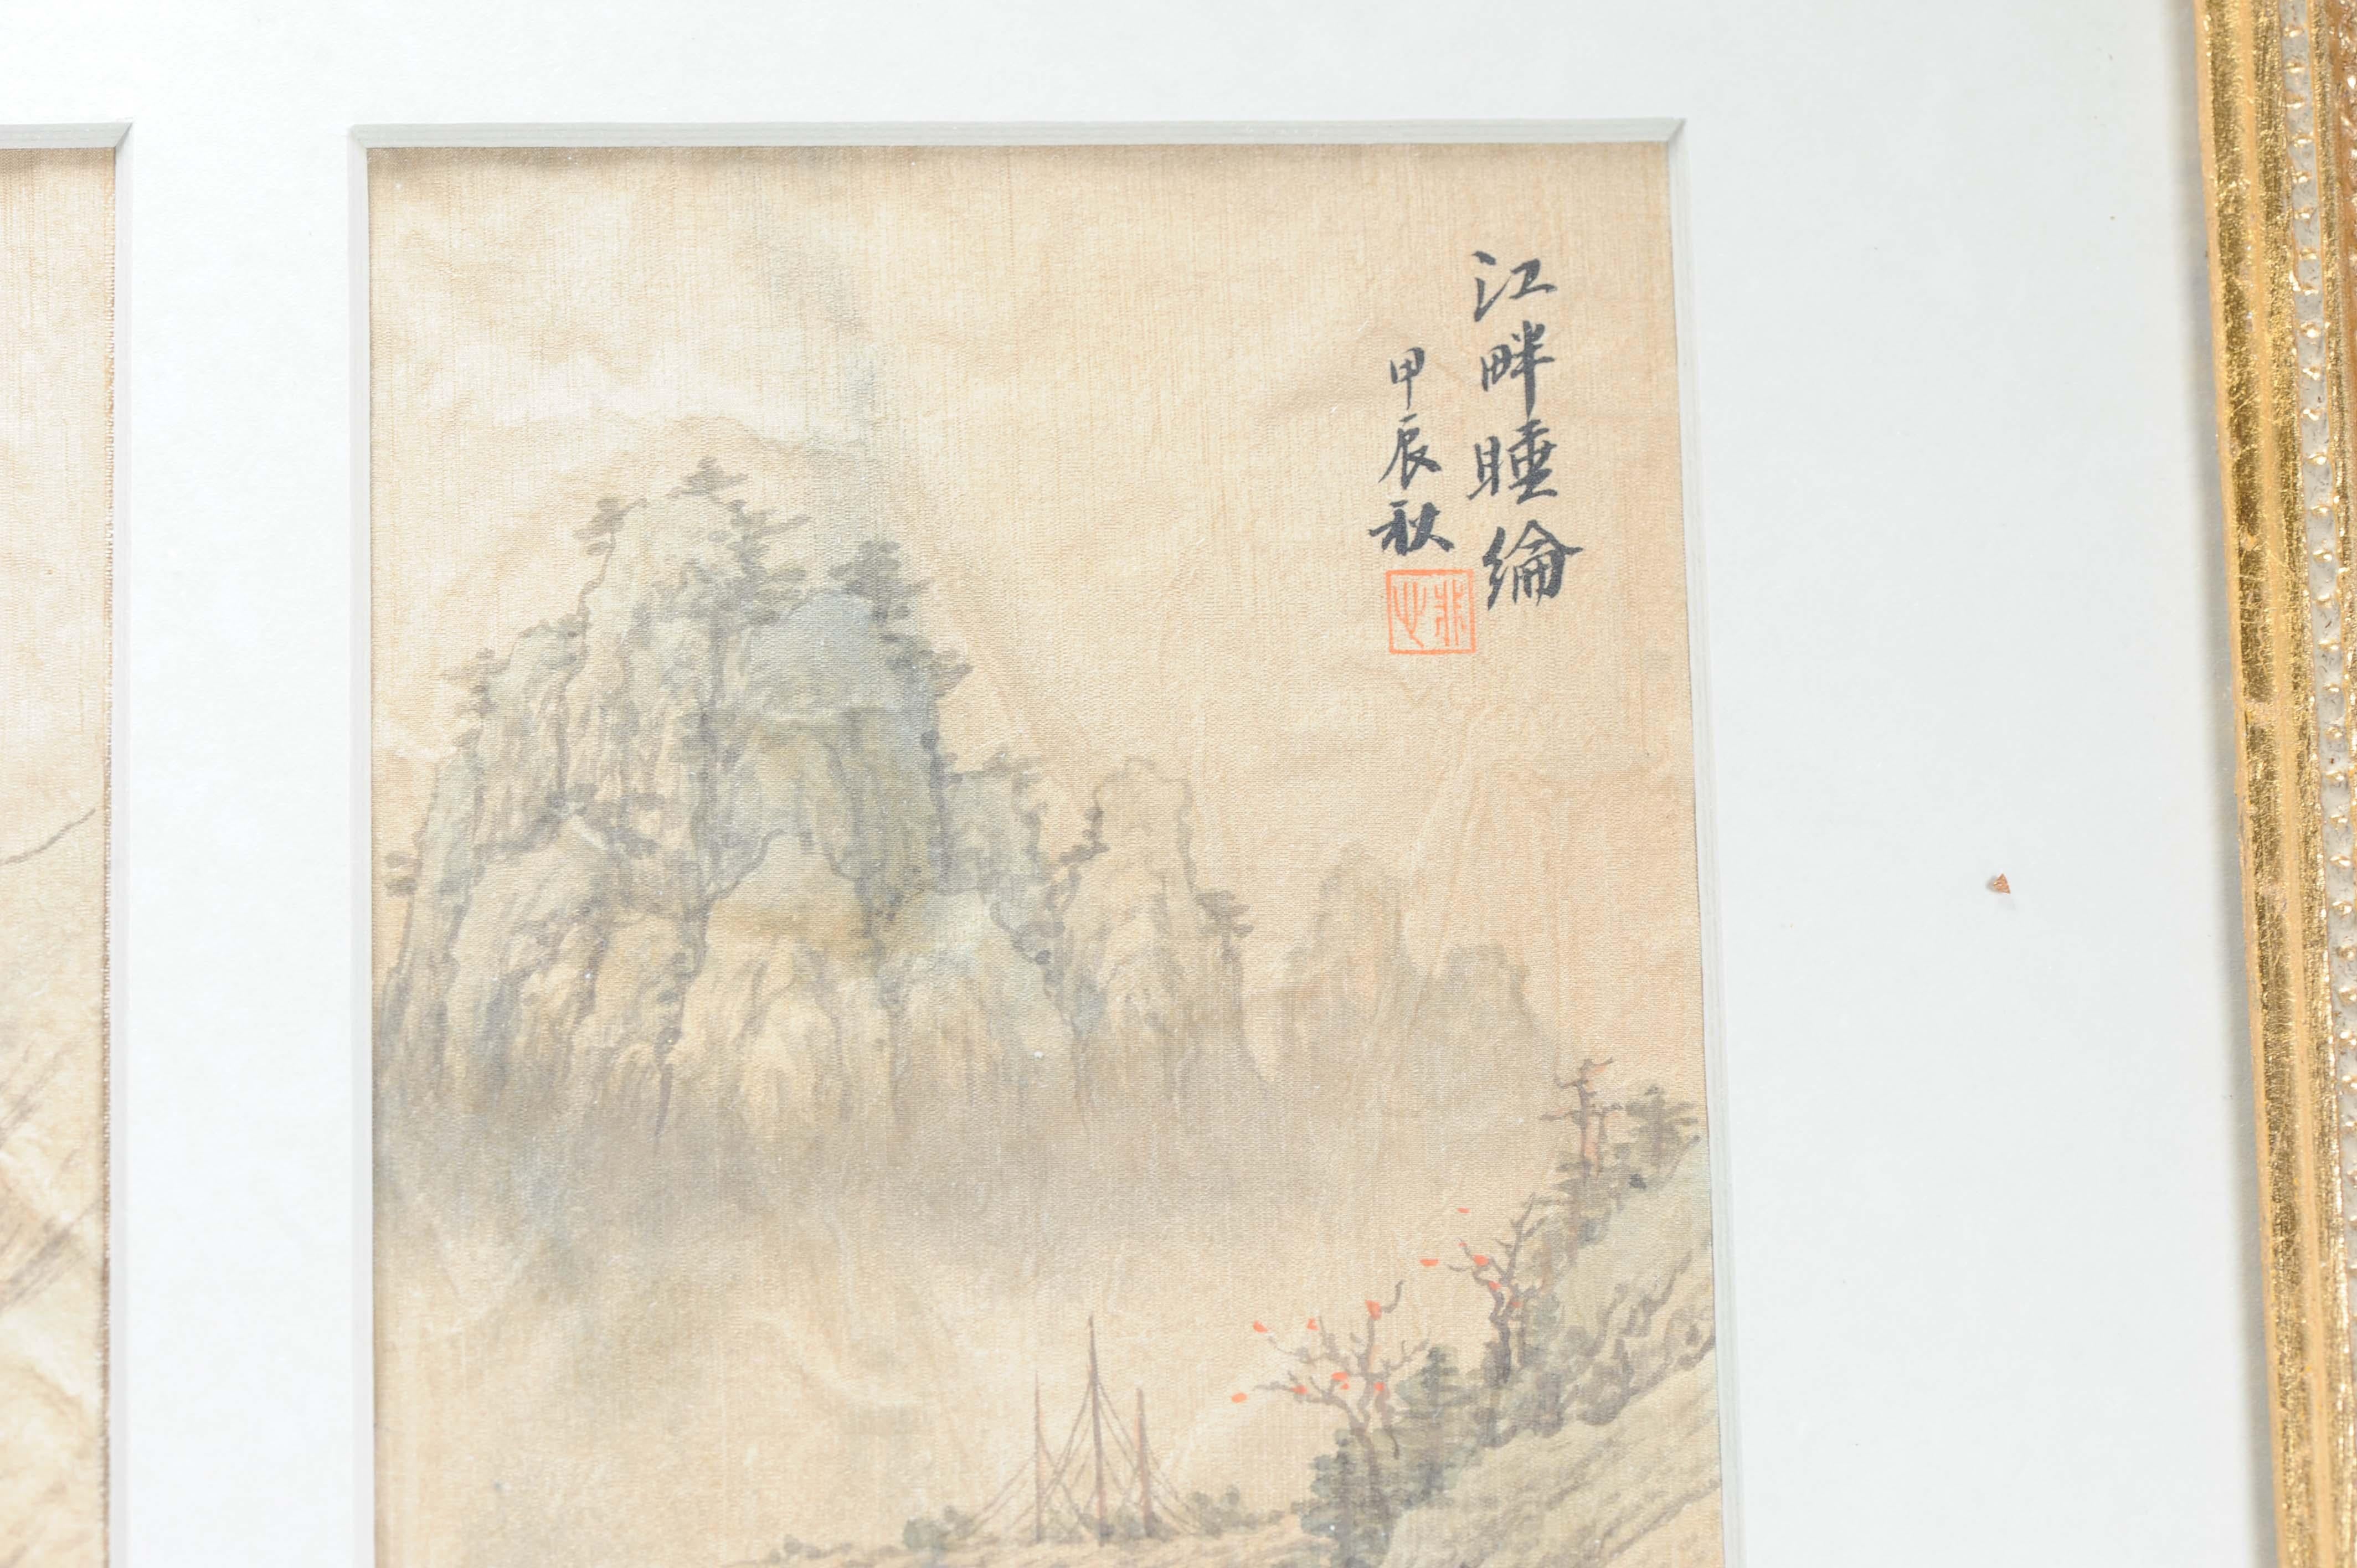 江畔睡綸
甲辰秋